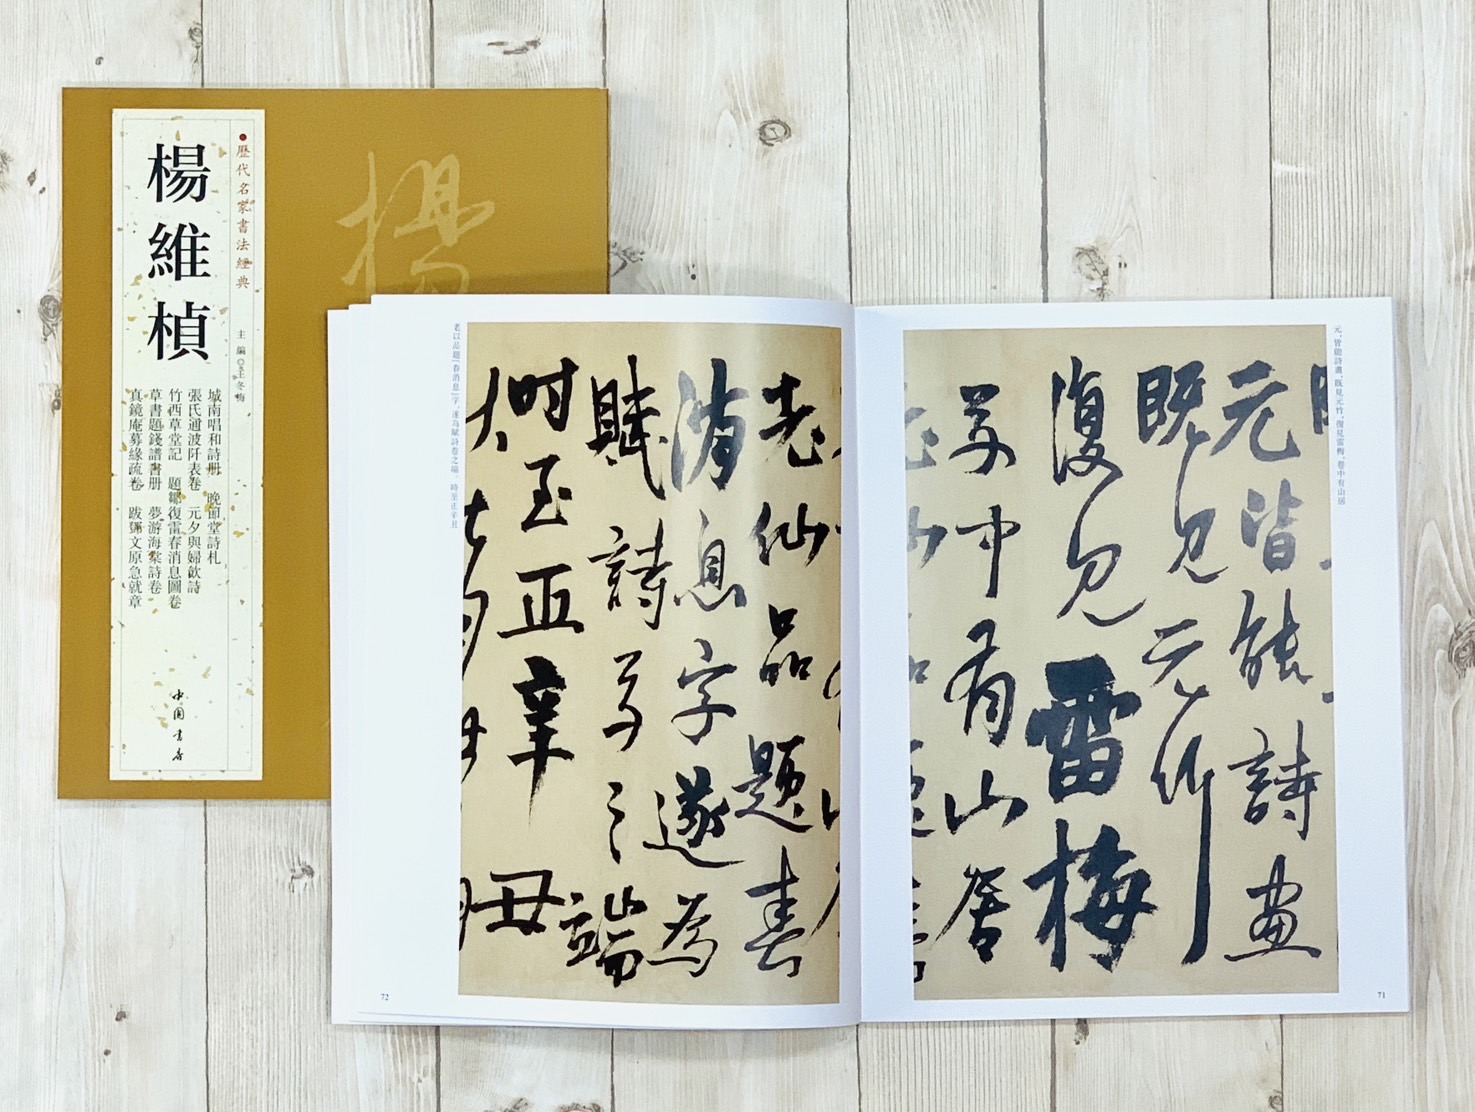 歷代名家書法經典
楊維楨
主編◎王冬梅
城南唱和詩册　晚節堂詩札
張氏通波阡表卷　元夕與婦飲詩
竹西草堂記　題鄒復雷春消息圖卷
草書題錢譜書册　夢游海棠詩卷
真鏡庵募緣疏卷　跋鄧文原急就章
中国书店
楊
元，皆能詩畫，既見元竹，復見雷梅，卷中有山居
元皆能詩畫
既見元竹
復見雷梅
卷中有山居
71
老仙品題
春
消息字遂為
賦詩卷之端
時至正辛丑
老仙品題「春消息」字，遂為賦詩卷之端。時至正辛丑
72